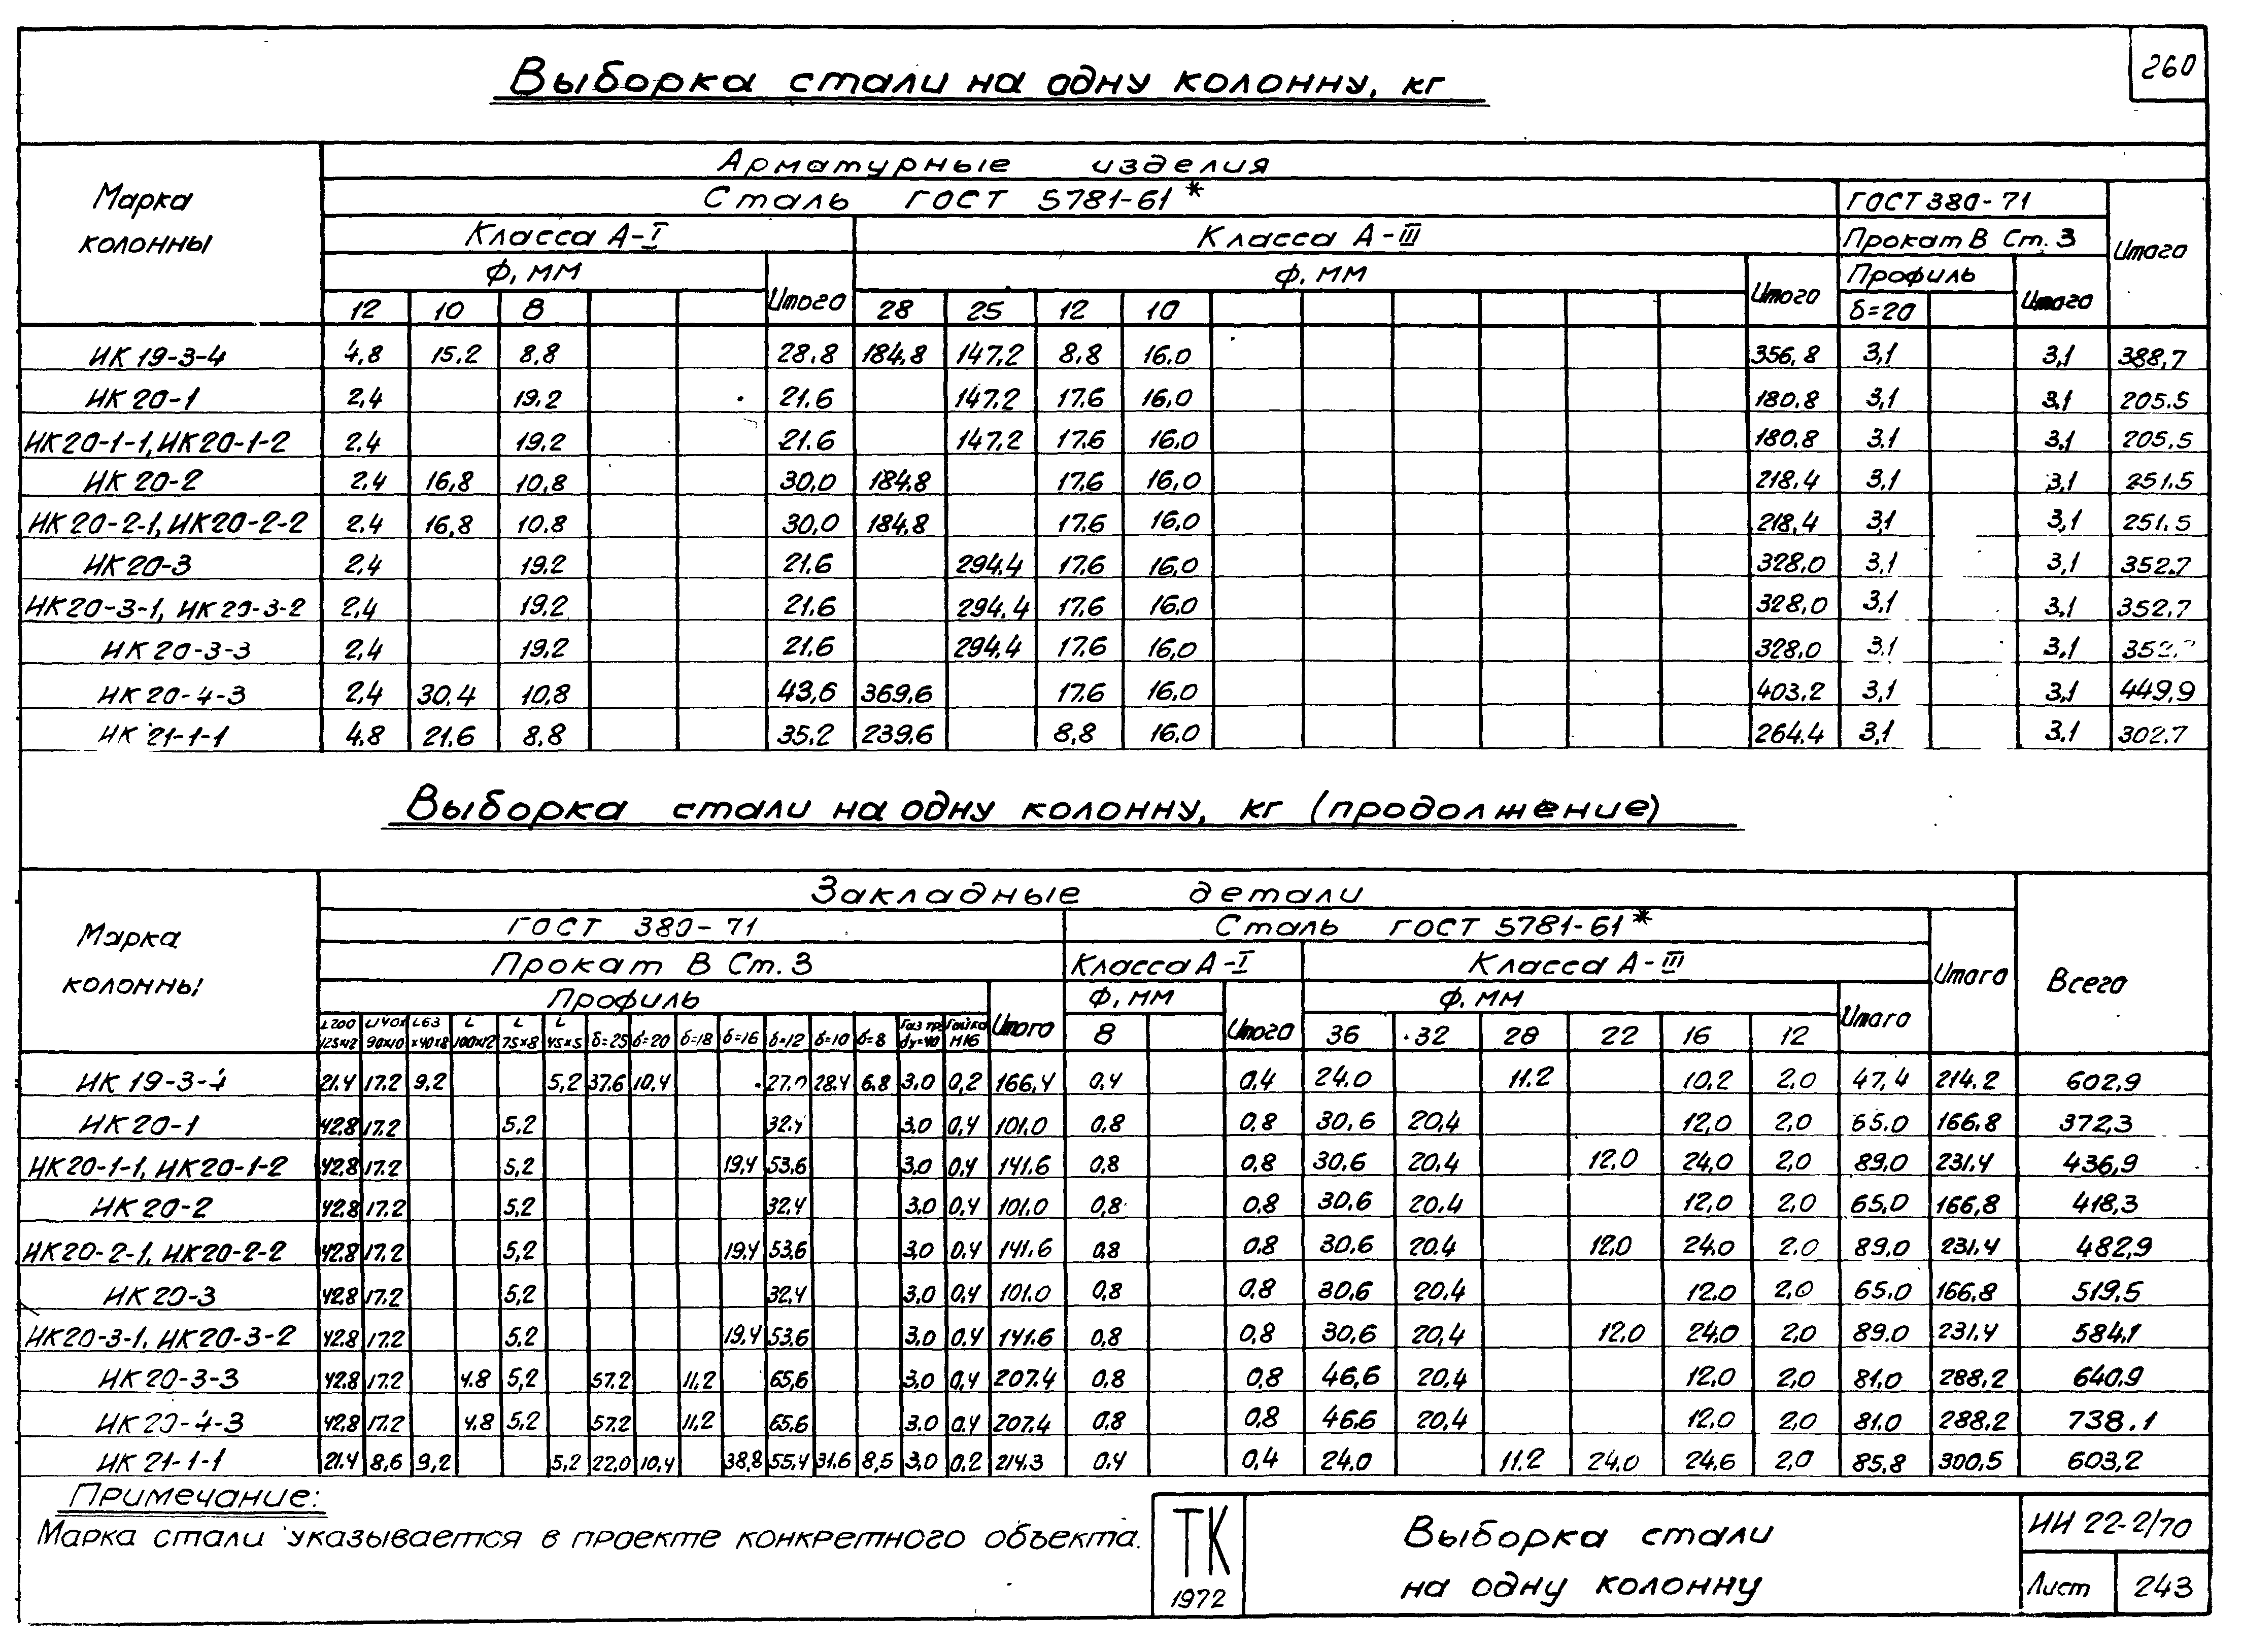 260
Выборка стали на одну колонну, кг
Марка колонны
Арматурные изделия
Сталь ГОСТ 5781-61* ГОСТ 380-71 Итого
Класса А-I Класса А-III Прокат В Ст. 3
Ф, мм Итого Ф, мм Итого Профиль Итого
12 10 8 28 25 12 10 δ=20
ИК 19-3-4 4,8 15,2 8,8 28.8 184,8 147,2 8,8 16.0 356,8 3,1 3,1 388,7
ИК 20-1 2,4 19.2 21.6 147.2 17.6 16,0 180.8 3,1 3,1 205.5
ИК 20-1-1, ИК 20-1-2 2.4 19.2 21.6 147,2 17.6 16.0 180,8 3,1 3,1 205,5
ИК 20-2 2,4 16,8 10.8 30,0 184,8 17,6 16,0 218,4 3,1 3,1 251.5
ИК 20-2-1, ИК 20-2-2 2,4 16,8 10.8 30,0 184,8 17.6 16,0 218,4 3,1 3,1 251,5
ИК 20-3 2,4 19.2 21.6 294,4 17.6 16,0 328,0 3.1 3,1 352.7
ИК 20-3-1, ИК 20-3-2 2,4 19.2 21.6 294,4 17.6 16.0 328,0 3,1 3.1 352,7
ИК 20-3-3 2,4 19.2 21.6 294.4 17.6 16,0 328.0 3.1 3.1
ИК 20-4-3 2,4 30,4 10,8 43,6 369,6 17.6 16.0 403.2 3,1 3.1 449,9
ИК 21-1-1 4.8 21.6 8.8 35.2 239.6 8,8 16.0 264.4 3,1 3.1 302.7
Выборка стали на одну колонну, кг (продолжение)
Марка колонны
Закладные детали Всего
ГОСТ 380-71 Сталь ГОСТ 5781-61* Итого
Прокат В Ст. 3 Класса А-I Класса А-III
Профиль Итого Ф, мм Итого Ф, мм Итого
L200 125x12 L140x 90x10 L63 x40x8 L 100x12 L 75x8 L 45x5 δ=25 δ=20 δ=18 δ=16 δ=12 δ=10 δ=8 Газ тр. dу=40 Гайка М16 8 36 32 28 22 16 12
ИК 19-3-4 21.4 17.2 9,2 5,2 37.6 10,4 27.0 28.4 6,8 3,0 0,2 166,4 0,4 0,4 24.0 11.2 10,2 2,0 47,4 214.2 602,9
ИК 20-1 42.8 17.2 5,2 32.4 3,0 0,4 101.0 0,8 0,8 30,6 20,4 12,0 2,0 65.0 166,8 372,3
ИК 20-1-1, ИК 20-1-2 42.8 17.2 5,2 19,4 53,6 3,0 0,4 141.6 0,8 0,8 30.6 20,4 12,0 24,0 2,0 89,0 231,4 436,9
ИК 20-2 42.8 17.2 5,2 32,4 3,0 0,4 101.0 0,8 0,8 30.6 20,4 12,0 2,0 65,0 166,8 418,3
ИК 20-2-1, ИК 20-2-2 42.8 17.2 5,2 19.4 53.6 3,0 0.4 141.6 0,8 0.8 30.6 20.4 12,0 24,0 2.0 89.0 231,4 482,9
ИК 20-3 42.8 17.2 5,2 32,4 3,0 0,4 101.0 0,8 0,8 30,6 20,4 12,0 2,0 65.0 166,8 519,5
ИК 20-3-1, ИК 20-3-2 42.8 17.2 5,2 19,4 53.6 3,0 0,4 141.6 0,8 0,8 30,6 20,4 12,0 24,0 2,0 89.0 231.4 584,1
ИК 20-3-3 42.8 17.2 4.8 5,2 57.2 11,2 65,6 3,0 0,4 207.4 0,8 0,8 46,6 20,4 12,0 2,0 81,0 288,2 640,9
ИК 20-4-3 42.8 17.2 4,8 5,2 57.2 11,2 65.6 3.0 0.4 207.4 0,8 0,8 46.6 20,4 12.0 2,0 81.0 288.2 738.1
ИК 21-1-1 21.4 8,6 9,2 5,2 22,0 10,4 38,8 55,4 31.6 8,5 3,0 0,2 214.3 0,4 0,4 24.0 11.2 24,0 24,6 2,0 85.8 300,5 603,2
Примечание:
Марка стали указывается в проекте конкретного объекта.
ТК
1972
Выборка стали
на одну колонну
ИИ 22-2/70
Лист 243